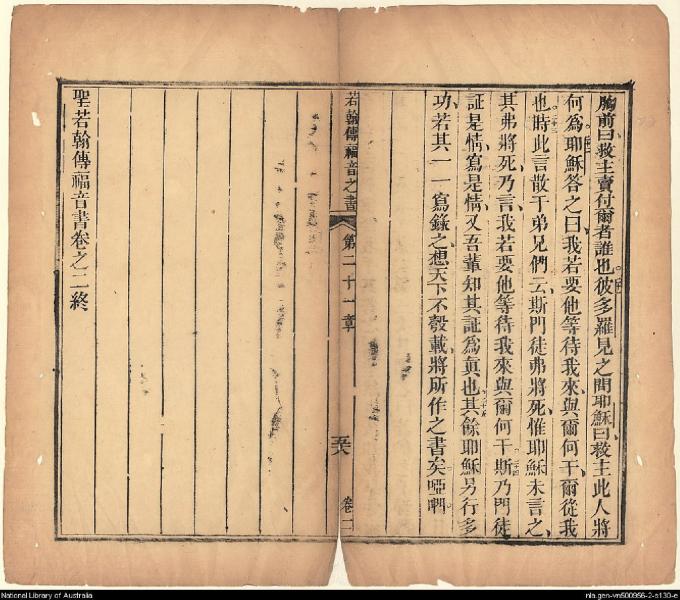 胸前曰救主賣付爾者誰也彼多羅見之問耶穌曰救主此人將
何爲耶穌答之曰我若要他等待我來與爾何干爾從我
也時此言散于弟兄們云斯門徒弗將死惟耶穌未言之
其弗將死乃言我若要他等待我來與爾何干斯乃門徒
証是情寫是情又吾輩知其証爲眞也其餘耶穌另行多
功若其一一寫錄之想天下不彀載將所作之書矣啞𠵽
若翰傳福音之書
第二十一章
卷二
聖若翰傳福音書卷之二終
National Library of Australia
nla.gen-vn500956-2-s130-e